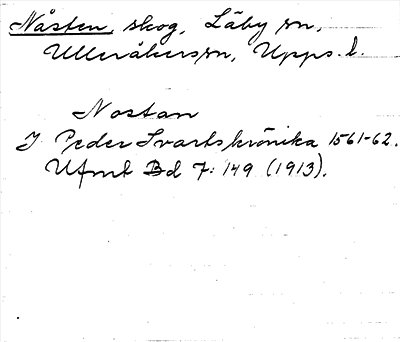 Nåsten, skog, Läby sn,
Ulleråkers sn, Upps. l.
Nostan
J Peder Svarts krönika 1561-62.
Ufmt Bd 7: 149 (1913).